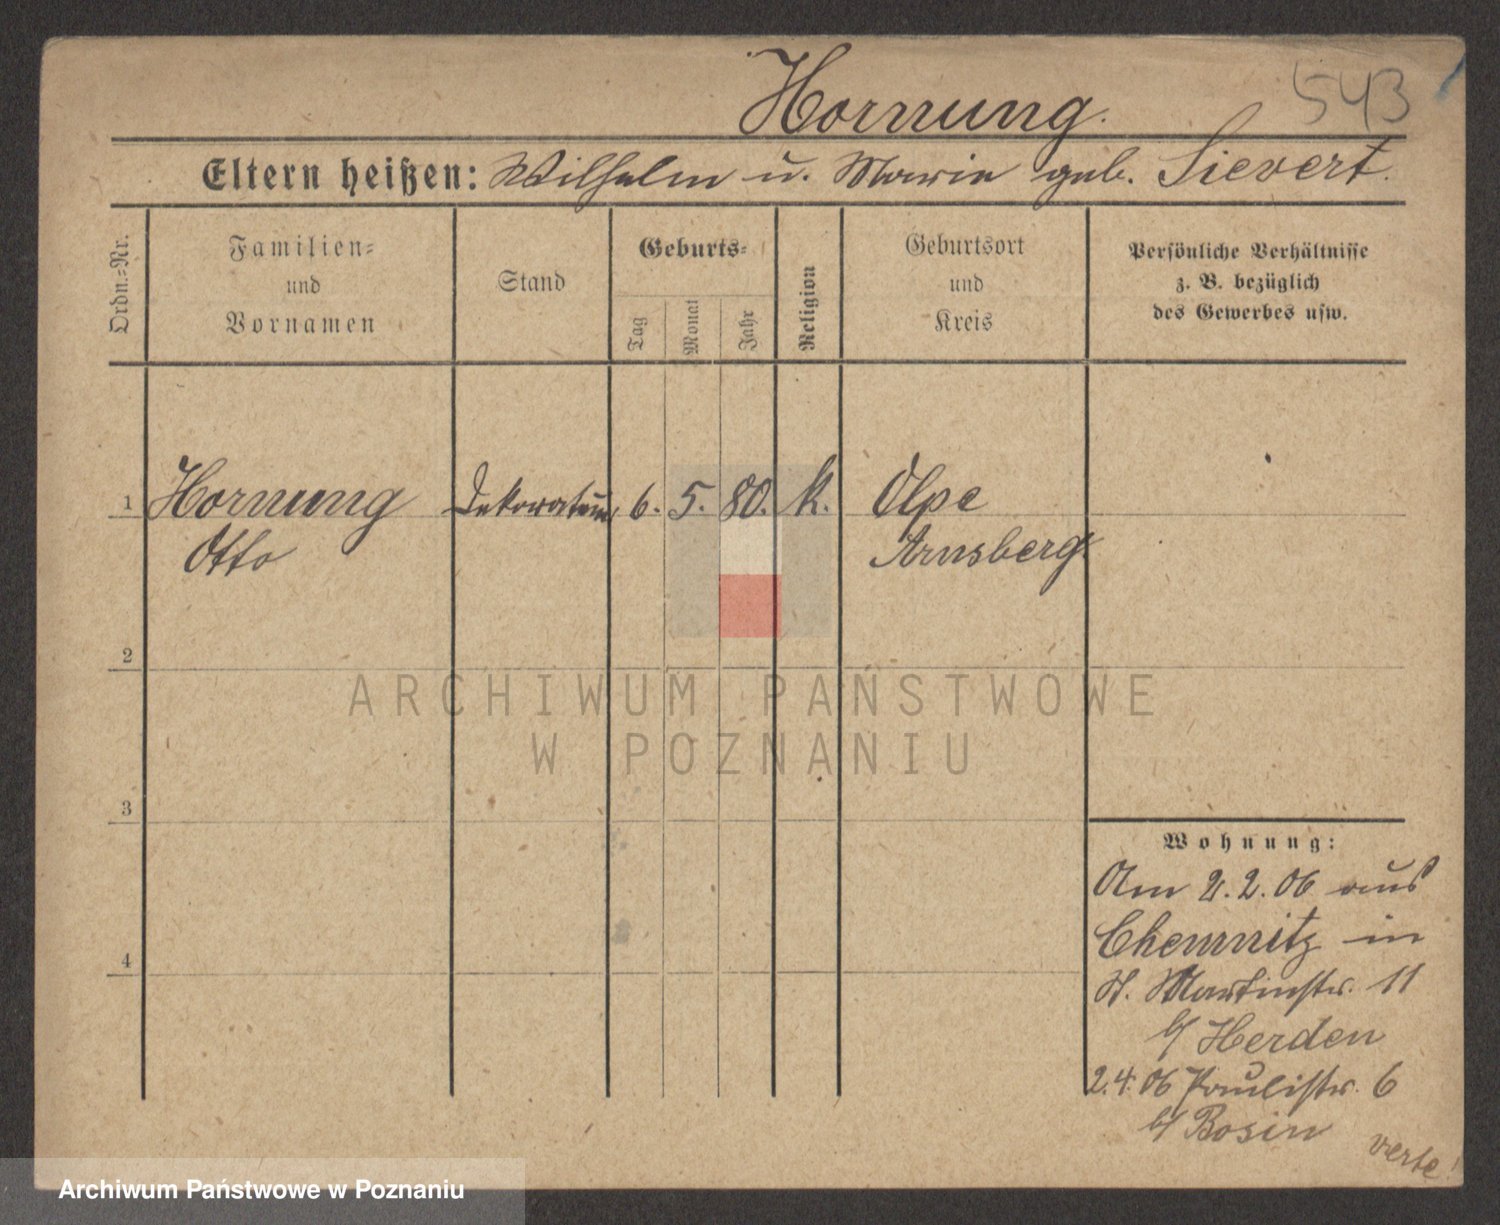 543
Hornung.
Eltern heißen: Wilhelm u. Marie geb. Sievert.
Ordn.=Nr.
Familien=
und
Vornamen
Stand
Geburts=
Tag
Monat
Jahr
Religion
Geburtsort
und
Kreis
Persönliche Verhältnisse
z. B. bezüglich
des Gewerbes usw.
1 Hornung Dekorateur 6. 5. 80. k. Olpe
Otto Arnsberg
2
ARCHIWUM PAŃSTWOWE
W POZNANIU
3
4
Wohnung:
Am 2.2.06 aus
Chemnitz in
St. Martinstr. 11
b/ Herden
2.4.06 Paulistr. 6
b/ Bosin
verte!
Archiwum Państwowe w Poznaniu